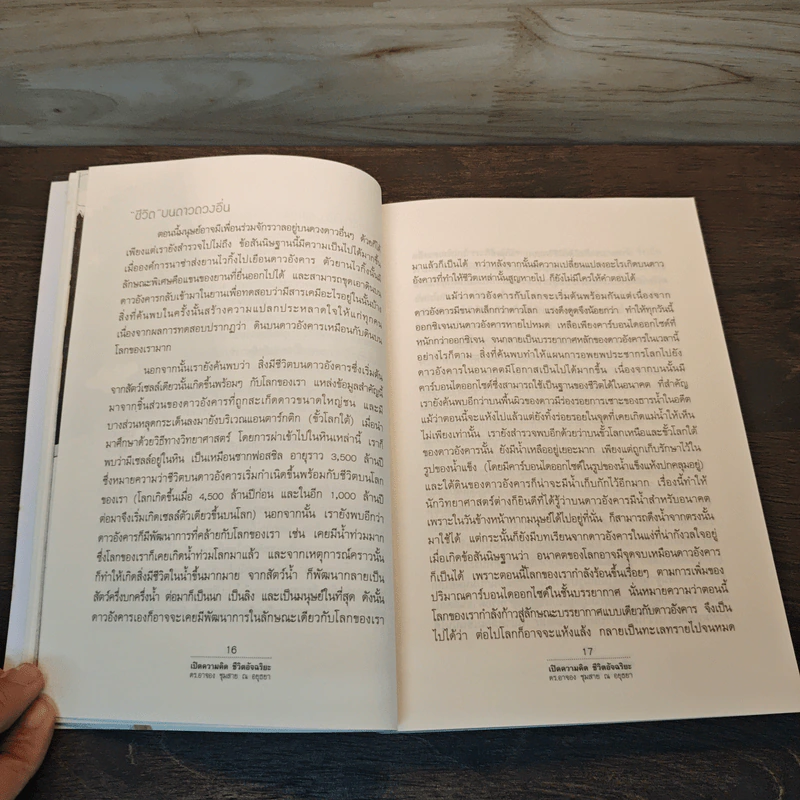 "ชีวิต" บนดาวดวงอื่น
ตอนนี้มนุษย์อาจมีเพื่อนร่วมจักรวาลอยู่บนดวงดาวอื่นๆ ด้วยก็ได้
เพียงแต่เรายังสำรวจไปไม่ถึง ข้อสันนิษฐานนี้มีความเป็นไปได้มากขึ้น
เมื่อองค์การนาซ่าส่งยานไวกิ้งไปเยือนดาวอังคาร ตัวยานไวกิ้งนั้นมี
ลักษณะพิเศษคือแขนของยานที่ยื่นออกไปได้ และสามารถขุดเอาดินบน
ดาวอังคารกลับเข้ามาในยานเพื่อทดสอบว่ามีสารเคมีอะไรอยู่ในนั้นบ้าง
สิ่งที่ค้นพบในครั้งนั้นสร้างความแปลกประหลาดใจให้แก่ทุกคน
เนื่องจากผลการทดสอบปรากฏว่า ดินบนดาวอังคารเหมือนกับดินบน
โลกของเรามาก
นอกจากนั้นเรายังค้นพบว่า สิ่งมีชีวิตบนดาวอังคารซึ่งเริ่มต้น
จากสัตว์เซลล์เดียวนั้นเกิดขึ้นพร้อมๆ กับโลกของเรา แหล่งข้อมูลสำคัญนี้
มาจากชิ้นส่วนของดาวอังคารที่ถูกสะเก็ดดาวขนาดใหญ่ชน และมี
บางส่วนหลุดกระเด็นลงมายังบริเวณแอนตาร์กติก (ขั้วโลกใต้) เมื่อนำ
มาศึกษาด้วยวิธีทางวิทยาศาสตร์ โดยการผ่าเข้าไปในหินเหล่านี้ เราก็
พบว่ามีเซลล์อยู่ในหิน เป็นเหมือนซากฟอสซิล อายุราว 3,500 ล้านปี
ซึ่งหมายความว่าชีวิตบนดาวอังคารเริ่มกำเนิดขึ้นพร้อมกับชีวิตบนโลก
ของเรา (โลกเกิดขึ้นเมื่อ 4,500 ล้านปีก่อน และในอีก 1,000 ล้านปี
ต่อมาจึงเริ่มเกิดเซลล์ตัวเดียวขึ้นบนโลก) นอกจากนั้น เรายังพบอีกว่า
ดาวอังคารก็มีพัฒนาการที่คล้ายกับโลกของเรา เช่น เคยมีน้ำท่วมมาก
ซึ่งโลกของเราก็เคยเกิดน้ำท่วมโลกมาแล้ว และจากเหตุการณ์คราวนั้น
ก็ทำให้เกิดสิ่งมีชีวิตในน้ำขึ้นมากมาย จากสัตว์น้ำ ก็พัฒนากลายเป็น
สัตว์ครึ่งบกครึ่งน้ำ ต่อมาก็เป็นนก เป็นลิง และเป็นมนุษย์ในที่สุด ดังนั้น
ดาวอังคารเองก็อาจจะเคยมีพัฒนาการในลักษณะเดียวกับโลกของเรา
16
เปิดความคิด ชีวิตอัจฉริยะ
ดร.อาจอง ชุมสาย ณ อยุธยา
มาแล้วก็เป็นได้ ทว่าหลังจากนั้นมีความเปลี่ยนแปลงอะไรเกิดบนดาว
อังคารที่ทำให้ชีวิตเหล่านั้นสูญหายไป ก็ยังไม่มีใครให้คำตอบได้
แม้ว่าดาวอังคารกับโลกจะเริ่มต้นพร้อมกันแต่เนื่องจาก
ดาวอังคารมีขนาดเล็กกว่าดาวโลก แรงดึงดูดจึงน้อยกว่า ทำให้ทุกวันนี้
ออกซิเจนบนดาวอังคารหายไปหมด เหลือเพียงคาร์บอนไดออกไซด์ที่
หนักกว่าออกซิเจน จนกลายเป็นบรรยากาศหลักของดาวอังคารในเวลานี้
อย่างไรก็ตาม สิ่งที่ค้นพบก็ทำให้แผนการอพยพประชากรโลกไปยัง
ดาวอังคารในอนาคตมีโอกาสเป็นไปได้มากขึ้น เนื่องจากบนนั้นมี
คาร์บอนไดออกไซด์ซึ่งสามารถใช้เป็นฐานของชีวิตได้ในอนาคต ที่สำคัญ
เรายังค้นพบอีกว่าบนพื้นผิวของดาวมีร่องรอยการเซาะของธารน้ำในอดีต
แม้ว่าตอนนี้จะแห้งไปแล้วแต่ยังทิ้งร่องรอยในจุดที่เคยเกิดแม่น้ำให้เห็น
ไม่เพียงเท่านั้น เรายังสำรวจพบอีกด้วยว่าบนขั้วโลกเหนือและขั้วโลกใต้
ของดาวอังคารนั้น ยังมีน้ำเหลืออยู่เยอะมาก เพียงแต่ถูกเก็บรักษาไว้ใน
รูปของน้ำแข็ง (โดยมีคาร์บอนไดออกไซด์ในรูปของน้ำแข็งแห้งปกคลุมอยู่)
และใต้ดินของดาวอังคารก็น่าจะมีน้ำเก็บกักไว้อีกมาก เรื่องนี้ทำให้
นักวิทยาศาสตร์ต่างก็ยินดีที่ได้รู้ว่าบนดาวอังคารมีน้ำสำหรับอนาคต
เพราะในวันข้างหน้าหากมนุษย์ได้ไปอยู่ที่นั่น ก็สามารถดึงน้ำจากตรงนั้น
มาใช้ได้ แต่กระนั้นก็ยังมีบทเรียนจากดาวอังคารในแง่ที่น่ากังวลใจอยู่
เมื่อเกิดข้อสันนิษฐานว่า อนาคตของโลกอาจมีจุดจบเหมือนดาวอังคาร
ก็เป็นได้ เพราะตอนนี้โลกของเรากำลังร้อนขึ้นเรื่อยๆ ตามการเพิ่มของ
ปริมาณคาร์บอนไดออกไซด์ในชั้นบรรยากาศ นั่นหมายความว่าตอนนี้
โลกของเรากำลังก้าวสู่ลักษณะบรรยากาศแบบเดียวกับดาวอังคาร จึงเป็น
ไปได้ว่า ต่อไปโลกก็อาจจะแห้งแล้ง กลายเป็นทะเลทรายไปจนหมด
17
เปิดความคิด ชีวิตอัจฉริยะ
ดร.อาจอง ชุมสาย ณ อยุธยา